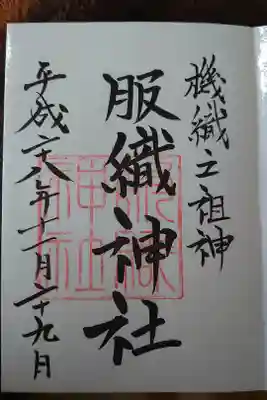 機織之祖神
服織神社
平成二十八年十一月二十九日